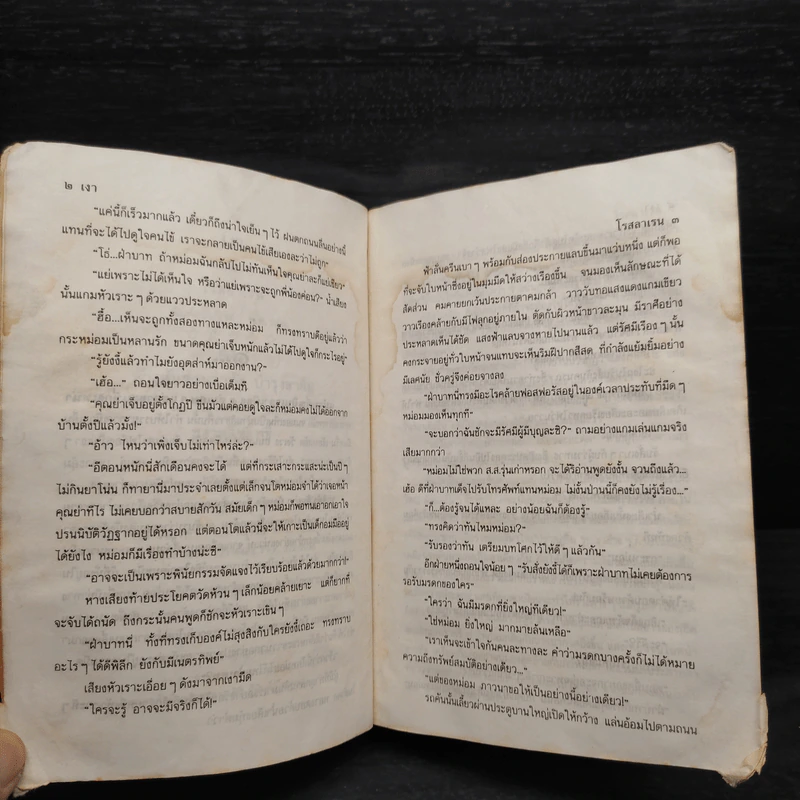 ๒ เงา
“แค่นี้ก็เร็วมากแล้ว เดี๋ยวก็ถึงน่าใจเย็นๆ ไว้ ฝนตกถนนลื่นอย่างนี้
แทนที่จะได้ไปดูใจคนไข้ เราจะกลายเป็นคนไข้เสียเองละว่าไม่ถูก”
“โธ่...ฝ่าบาท ถ้าหม่อมฉันกลับไปไม่ทันเห็นใจคุณย่าละก็แย่เชียว”
“แย่เพราะไม่ได้เห็นใจ หรือว่าแย่เพราะจะถูกพี่น้องค่อน?” น้ำเสียง
นั้นแกมหัวเราะๆ ด้วยแววประหลาด
“ฮื้อ...เห็นจะถูกทั้งสองทางแหละหม่อม ก็ทรงทราบดีอยู่แล้วว่า
กระหม่อมเป็นหลานรัก ขนาดคุณย่าเจ็บหนักแล้วไม่ได้ไปดูใจก็กระไรอยู่”
“รู้ยังงี้แล้วทำไมยังอุตส่าห์มาออกงาน?”
“เฮ้อ...” ถอนใจยาวอย่างเบื่อเต็มที
“คุณย่าเจ็บอยู่ตั้งโกฏปี ขืนมัวแต่คอยดูใจละก็หม่อมคงไม่ได้ออกจาก
บ้านตั้งปีแล้วมั้ง!”
“อ้าว ไหนว่าเพิ่งเจ็บไม่เท่าไหร่ล่ะ?”
“อีตอนหนักนี่สักเดือนคงจะได้ แต่ที่กระเสาะกระแสะน่ะเป็นปีๆ
ไม่กินยาโน่น ก็ทายานี่มาประจำเลยตั้งแต่เล็กจนโตหม่อมจำได้ว่าเจอหน้า
คุณย่าทีไร ไม่เคยบอกว่าสบายสักวัน สมัยเด็กๆ หม่อมก็พอทนเอาอกเอาใจ
ปรนนิบัติวัฏฐากอยู่ได้หรอก แต่ตอนโตแล้วนี่จะให้เกาะเป็นเด็กอมมืออยู่
ได้ยังไง หม่อมก็มีเรื่องทำบ้างน่ะซี”
“อาจจะเป็นเพราะพินัยกรรมจัดแจงไว้เรียบร้อยแล้วด้วยมากกว่า!”
หางเสียงท้ายประโยคตวัดห้วนๆ เล็กน้อยคล้ายเยาะ แต่ก็ยากที่
จะจับได้ถนัด ถึงกระนั้นคนพูดก็ชักจะหัวเราะเขินๆ
“ฝ่าบาทนี่ ทั้งที่ทรงเก็บองค์ไม่สุงสิงกับใครยังงี้เถอะ ทรงทราบ
อะไรๆ ได้ดีพิลึก ยังกับมีเนตรทิพย์”
เสียงหัวเราะเอื่อยๆ ดังมาจากเงามืด
“ใครจะรู้ อาจจะมีจริงก็ได้!”
โรสลาเรน ๓
ฟ้าลั่นครืนเบาๆ พร้อมกับส่องประกายแลบขึ้นมาแว่บหนึ่ง แต่ก็พอ
ที่จะจับใบหน้าซึ่งอยู่ในมุมมืดให้สว่างเรืองขึ้น จนมองเห็นลักษณะที่ได้
สัดส่วน คมคายยกเว้นประกายตาคมกล้า วาววับทอแสงแดงแกมเขียว
วาวเรืองคล้ายกับมีไฟลุกอยู่ภายใน ตัดกับผิวหน้าขาวละมุน มีราศีอย่าง
ประหลาดเห็นได้ชัด แสงฟ้าแลบจางหายไปนานแล้ว แต่รัศมีเรืองๆ นั้น
คงกระจายอยู่ทั่วใบหน้าจนแทบจะเห็นริมฝีปากสีสด ที่กำลังแย้มยิ้มอย่าง
มีเลศนัย ชั่วครู่จึงค่อยจางลง
“ฝ่าบาทนี่ทรงมีอะไรคล้ายฟอสฟอรัสอยู่ในองค์เวลาประทับที่มืดๆ
หม่อมมองเห็นทุกที”
“จะบอกว่าฉันชักจะมีรัศมีผู้มีบุญละซิ?” ถามอย่างแกมเล่นแกมจริง
เสียมากกว่า
“หม่อมไม่ใช่พวก ส.ส.รุ่นเก่าหรอก จะได้ริอ่านพูดยังงั้น จวนถึงแล้ว...
เฮ้อ ดีที่ฝ่าบาทเด็จไปรับโทรศัพท์แทนหม่อม ไม่งั้นป่านนี้ก็คงยังไม่รู้เรื่อง...”
“ก็...ต้องรู้จนได้แหละ อย่างน้อยฉันก็ต้องรู้”
“ทรงคิดว่าทันไหมหม่อม?”
“รับรองว่าทัน เตรียมบทโศกไว้ให้ดีๆ แล้วกัน”
อีกฝ่ายหนึ่งถอนใจน้อยๆ “รับสั่งยังงี้ได้ก็เพราะฝ่าบาทไม่เคยต้องการ
รอรับมรดกของใคร”
“ใครว่า ฉันมีมรดกที่ยิ่งใหญ่ทีเดียว!”
“ใช่หม่อม ยิ่งใหญ่ มากมายล้นเหลือ”
“เราเห็นจะเข้าใจกันคนละทางละ คำว่ามรดกบางครั้งก็ไม่ได้หมาย
ความถึงทรัพย์สมบัติอย่างเดียว...”
“แต่ของหม่อม ภาวนาขอให้เป็นอย่างนี้อย่างเดียว!”
รถคันนั้นเลี้ยวผ่านประตูบานใหญ่เปิดให้กว้าง แล่นอ้อมไปตามถนน